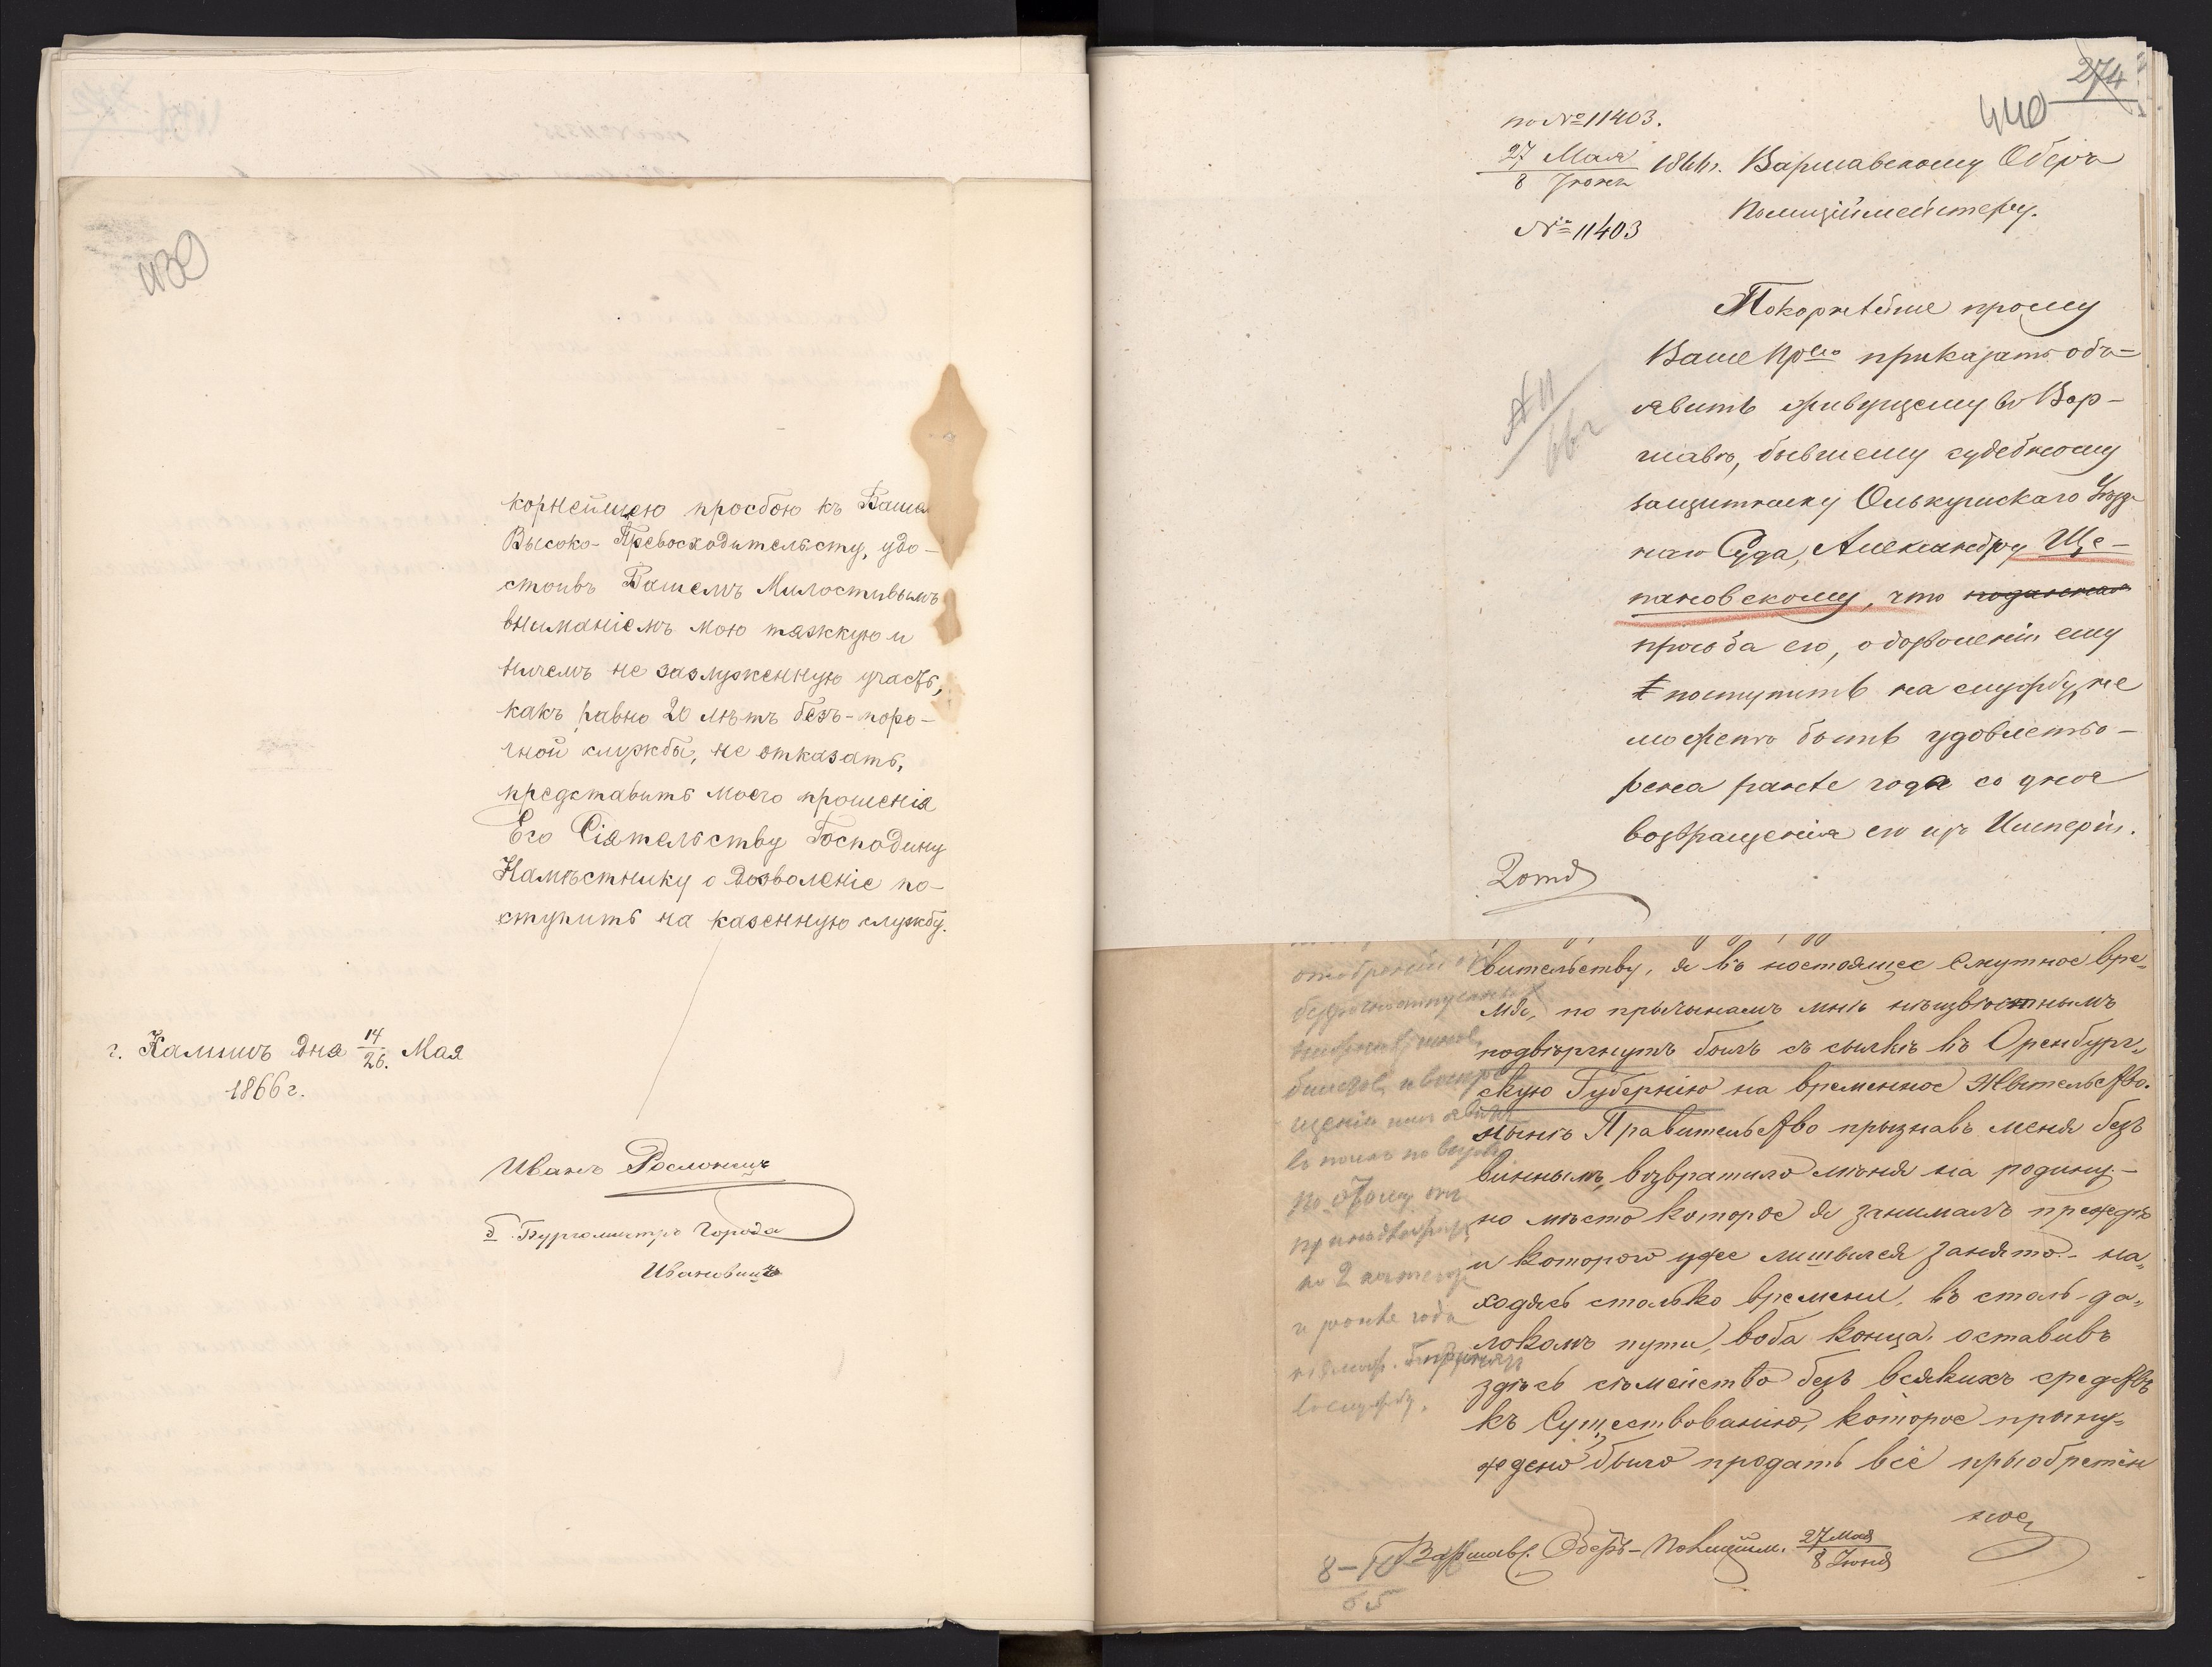 439
корнейшею просбою къ Ваше
Высоко-Превосходительсту, удо-
стоивъ Вашемъ Милостивымъ
вниманіемъ мою тяжкую и
ничемъ не заслуженную участь,
какъ равно 20 лѣтъ безъ-поро-
чной службы, не отказать,
представить моего прошенія
Его Сіятельству Господину
Намѣстнику о дозволеніе по-
ступить на казенную службу.
г. Калишъ дня 14/26. Мая
1866 г.
Иванъ Рослонецъ
б. Бургомистръ Города
Ивановицъ
274
440
по № 11403.
27 Мая / 8 Іюня 1866 г. Варшавскому Оберъ
Полиціймейстеру.
№ 11403
Покорнѣйше прошу
Ваше Пр-во приказать объ=
явить живущему въ Вар-
шавѣ, бывшему судебному
защитнику Олькушскаго Уѣзд
наго Суда, Александру Ще-
пановскому, что поданная
просьба его, о дозволеніи ему
поступить на службу, не
можетъ быть удовлетво-
рена ранѣе года со дня
возвращенія его изъ Имперіи.
вительству, я въ настоящее смутное вре„
мя, по прычынамъ мнѣ нѣизвѣстнымъ
подвѣргнутъ былъ съ сылкѣ въ Оренбург„
скую Губернію на временное жытельство.
Нынѣ Правительство прызнавъ меня безъ
виннымъ, возвратило мѣня на родину -
но мѣсто которое я занималъ прежде
и которого уже лишылся занято. - на„
ходясь столько времени, въ столь да„
локомъ пути, воба конца, оставивъ
здѣсь сѣмейство безъ всякихъ средствъ
къ Существованію, которое прыну„
ждено было продать всё прыобретен
ное
Варшавс. Оберъ-Полиційм. 27 Мая / 8 Іюня